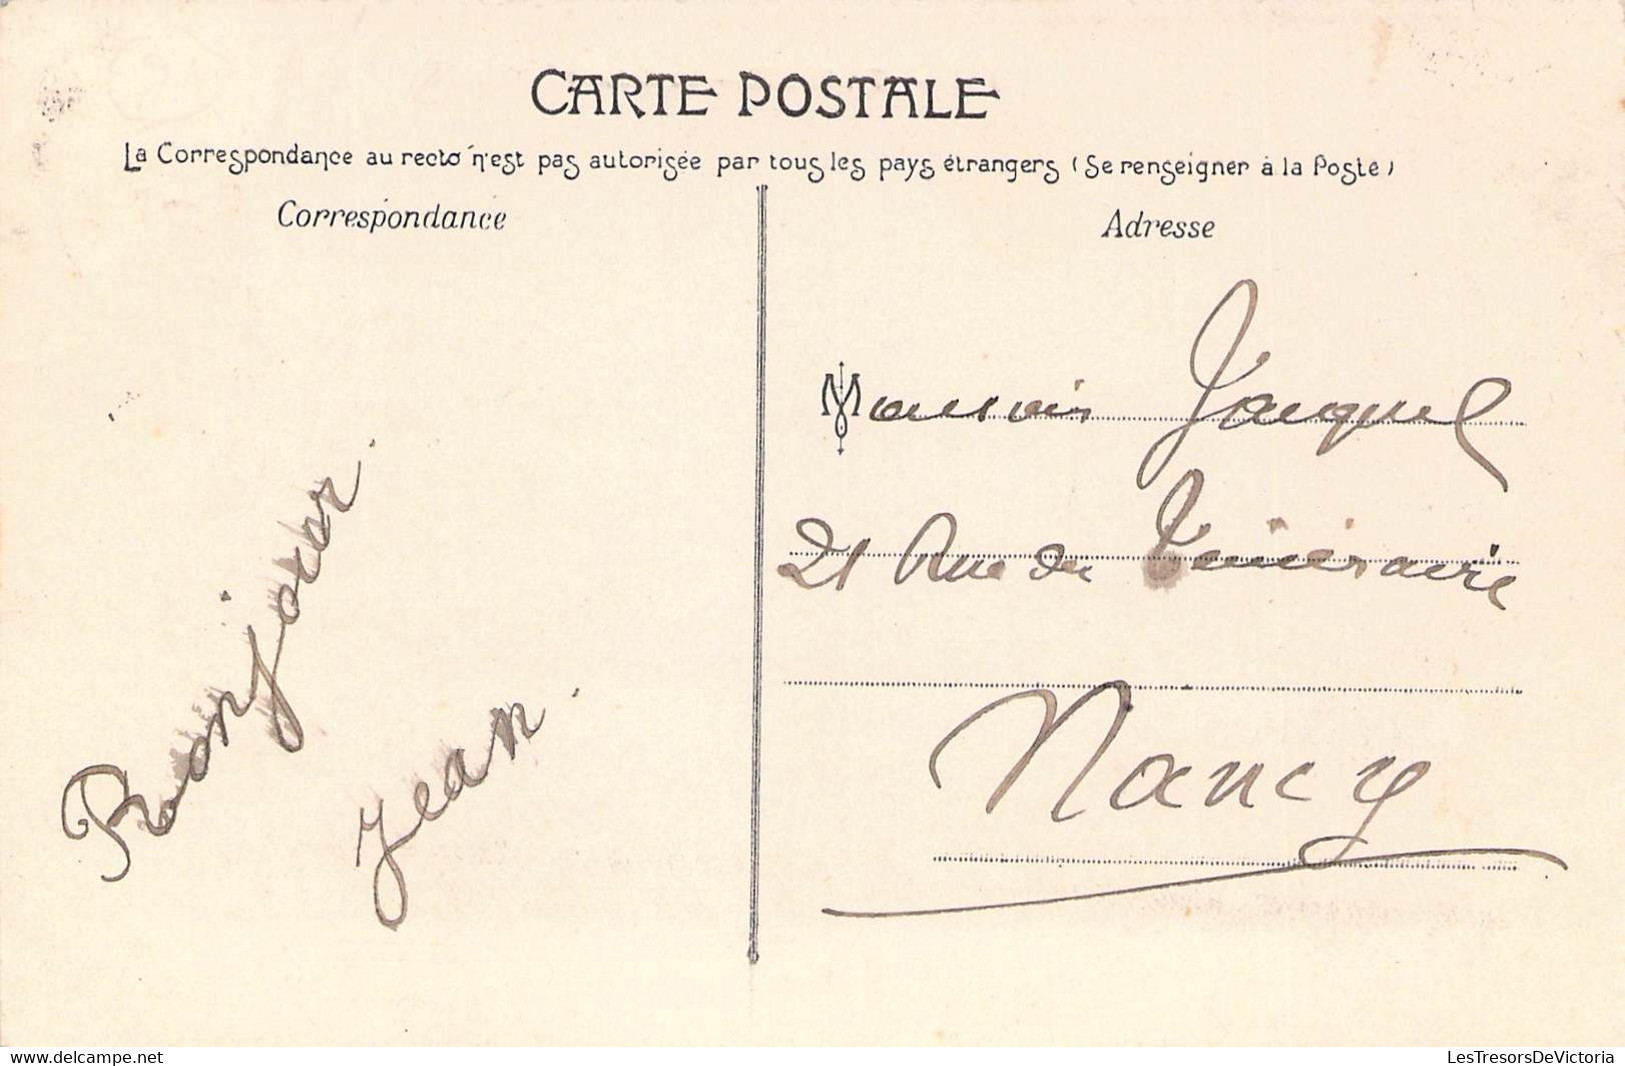 CARTE POSTALE
La Correspondance au recto n'est pas autorisée par tous les pays étrangers (Se renseigner à la Poste)
Correspondance
Adresse
Bonjour.
Jean.
Monsieur Jacquel
21 Rue du Téméraire
Nancy
www.delcampe.net
LesTresorsDeVictoria